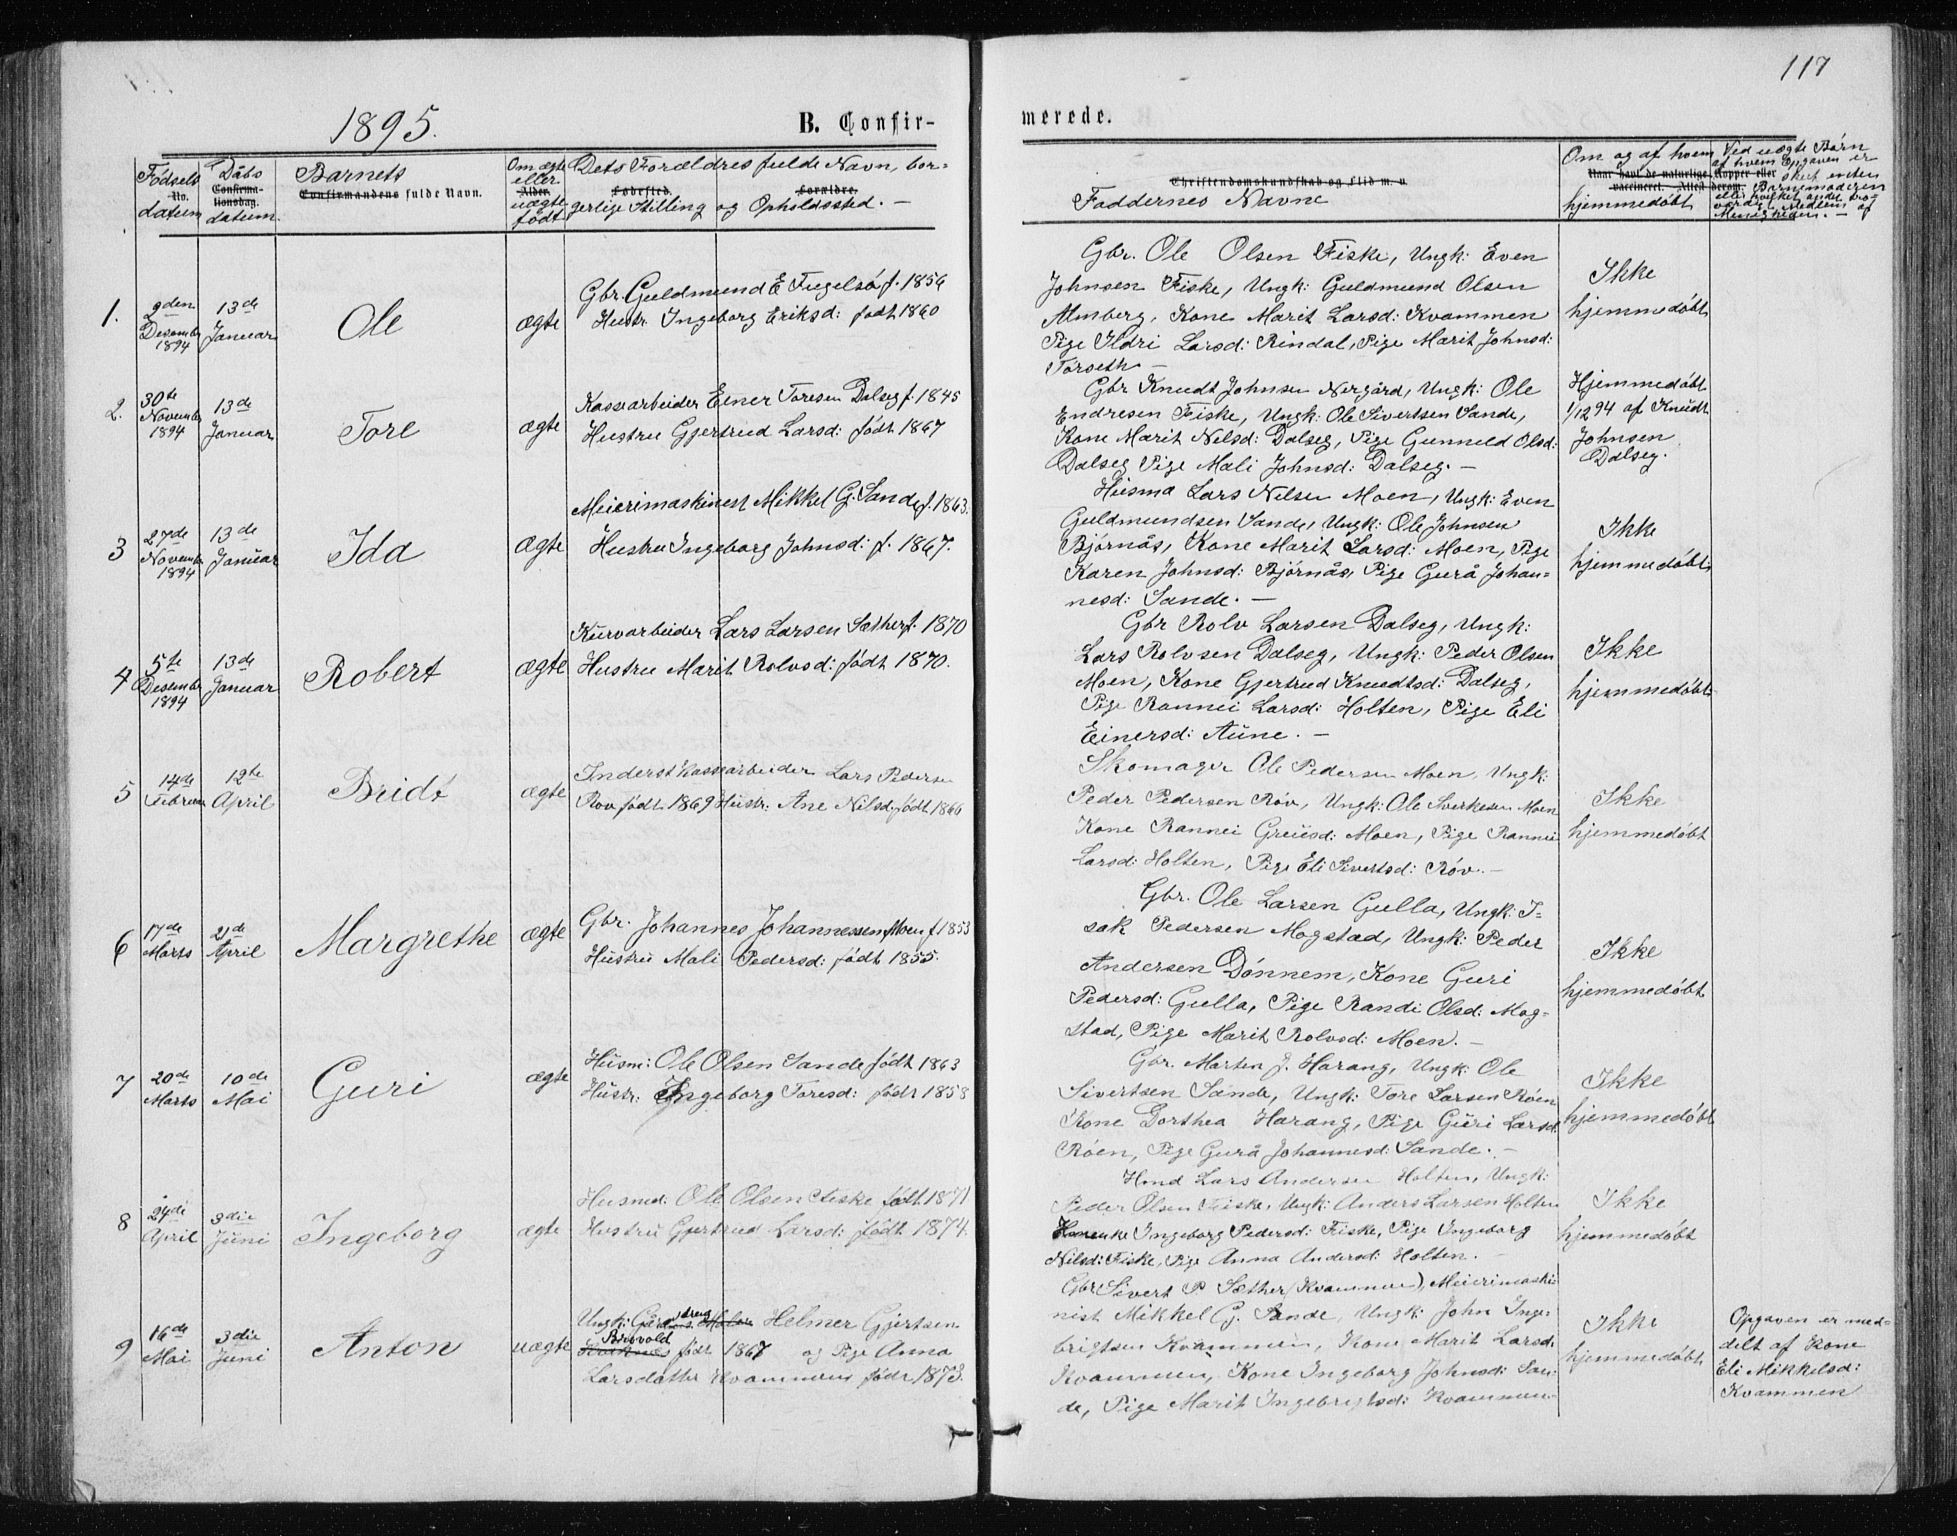 117
1895.
B. Confir-
merede.
Fødsels No. datum
Dåbs Confirma-tionsdag. datum.
Barnets Confirmandens fulde Navn.
Om ægte eller Alder. uægte født
Dets Forældres fulde Navn, bor-
Fødested. Forældre.
gerlige Stilling og Opholdssted. —
Christendomskundskab og Flid m. v.
Faddernes Navne
Om og af hvem
Naar havt de naturlige Kopper eller vaccineret. Attest derom.
hjemmedøbt
Ved uægte Børn
af hvem Opgaven er
sket enten
Barnemoderen
eller hvilket andet tro-
værdigt Medlem af
Menigheden. —
1.
2den Desember 1894
13de Januar
Ole
ægte
Gbr. Guldmund E Fugelsø f. 1856
Hustr. Ingeborg Eriksd: født 1860
Gbr. Ole Olsen Fiske, Ungk: Even
Johnsen Fiske, Ungk: Guldmund Olsen
Almberg, Kone Marit Larsd: Kvammen
Pige Ildri Larsd: Rindal, Pige Marit Johnsd:
Torseth —
Ikke
hjemmedøbt
2.
30te November 1894
13de Januar
Tore
ægte
Kassearbeider Einer Toresen Dalseg f. 1845
Hustru Gjertrud Larsd: født 1867
Gbr Knudt Johnsen Nergård, Ungk: Ole
Endresen Fiske, Ungk: Ole Sivertsen Sande,
Kone Marit Nilsd: Dalseg, Pige Gunneld Olsd:
Dalseg Pige Mali Johnsd: Dalseg. —
Hjemmedøbt
1/12 94 af Knudt
Johnsen
Dalseg.
3
27de November 1894
13de Januar
Ida
ægte
Meierimaskinest Mikkel G. Sande f. 1863.
Hustru Ingeborg Johnsd: f. 1867.
Husma Lars Nilsen Moen, Ungk: Even
Guldmundsen Sande, Ungk: Ole Johnsen
Bjørnås, Kone Marit Larsd: Moen, Pige
Karen Johnsd: Bjørnås, Pige Gurå Johan-
nesd: Sande. —
Ikke
hjemmedøbt
4
5te Desember 1894
13de Januar
Robert
ægte
Kurvarbeider Lars Larsen Sæther f. 1870
Hustru Marit Rolvsd: født 1870.
Gbr Rolv Larsen Dalseg, Ungk:
Lars Rolvsen Dalseg, Ungk: Peder Olsen
Moen, Kone Gjertrud Knudtsd: Dalseg,
Pige Rannei Larsd: Holten, Pige Eli
Einersd: Aune. —
Ikke
hjemmedøbt
5
14de Februar
12te April
Bridt
ægte
Inderst Kassearbeider Lars Pedersen
Røv født 1869 Hustr: Ane Nilsd: født 1866
Skomager Ole Pedersen Moen, Ungk:
Peder Pedersen Røv, Ungk: Ole Sverkesen Moen
Kone Rannei Greiisd: Moen, Pige Rannei
Larsd: Holten, Pige Eli Sivertsd: Røv. —
Ikke
hjemmedøbt
6
17de Marts
2de April
Margrethe
ægte
Gbr. Johannes Johannessen Moen f 1853
Hustru Mali Pedersd: født 1855.
Gbr. Ole Larsen Gulla, Ungk: I-
sak Pedersen Mogstad, Ungk: Peder
Andersen Dønnem, Kone Guri
Pedersd: Gulla, Pige Randi Olsd: Mog-
stad, Pige Marit Rolvsd: Moen. —
Ikke
hjemmedøbt
7
20de Marts
10de Mai
Guri
ægte
Husm: Ole Olsen Sande født 1863
Hustr: Ingeborg Toresd: født 1858
Gbr. Marten J. Harang, Ungk: Ole
Sivertsen Sande, Ungk: Tore Larsen Røen
Kone Dorthea Harang, Pige Guri Larsd:
Røen, Pige Gurå Johannesd: Sande. —
Ikke
hjemmedøbt
8
24de April
3die Juni
Ingeborg
ægte
Husmd: Ole Olsen Fiske født 1871
Hustru Gjertrud Larsd: født 1874.
Hmd Lars Andersen Holten, Ungk:
Peder Olsen Fiske, Ungk: Anders Larsen Holten
Ingeborg Pedersd: Fiske, Pige Ingeborg
Nilsd: Fiske, Pige Anna Andersd: Holten. —
Ikke
hjemmedøbt
9
16de Mai
3die Juni
Anton
uægte
Ungk: Helmer Gjertsen
født 1867 og Pige Anna
Larsdatter Kvammen født 1873.
Gbr Sivert P Sæther (Kvammen), Meierimaski-
nist Mikkel G. Sande, Ungk: John Inge-
brigtsen Kvammen, Kone Marit Larsd:
Kvammen, Kone Ingeborg Johnsd: San-
de, Pige Marit Ingebrigtsd: Kvammen
Ikke
hjemmedøbt
Opgaven er med-
delt af Kone
Eli Mikkelsd:
Kvammen